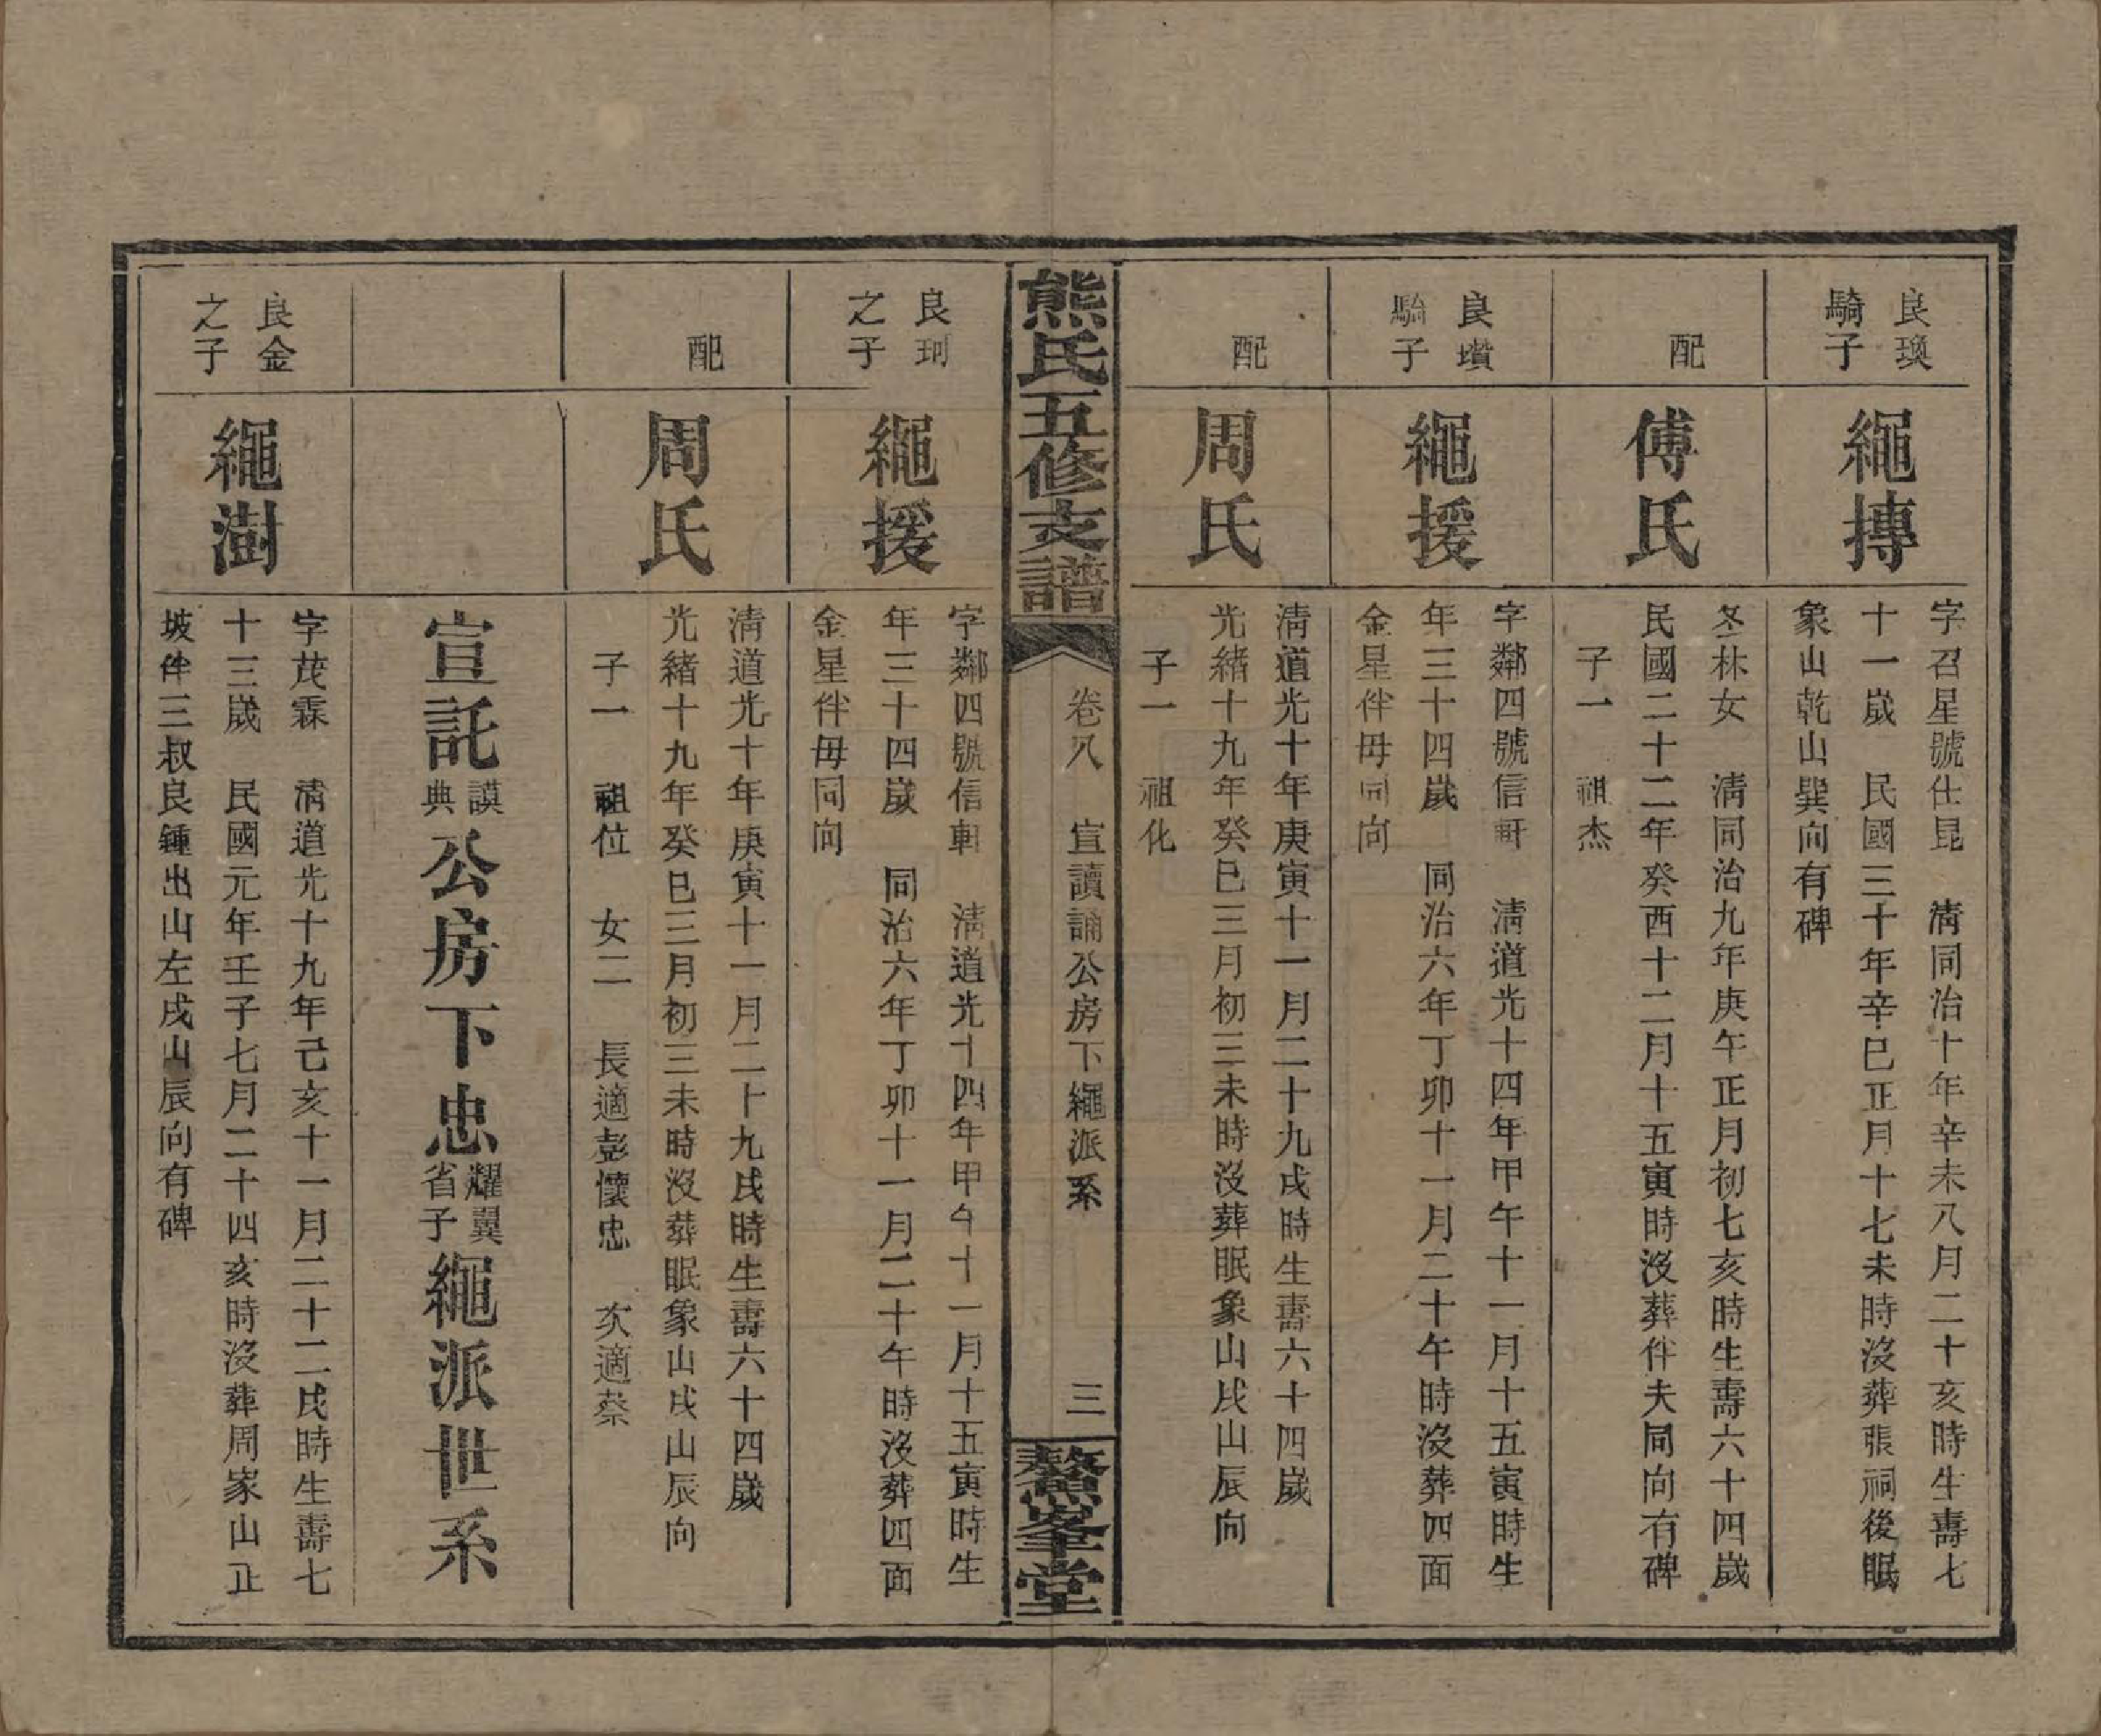 良瑍
騎子
繩摶
字召星號仕昆　清同治十年辛未八月二十亥時生壽七
十一歲　民國三十年辛巳正月十七未時沒葬張祠後眠
象山乾山巽向有碑
配
傅氏
冬林女　清同治九年庚午正月初七亥時生壽六十四歲
民國二十二年癸酉十二月十五寅時沒葬伴夫同向有碑
子一　祖杰
良瓚
騎子
繩援
字鄰四號信軒　清道光十四年甲午十一月十五寅時生
年三十四歲　同治六年丁卯十一月二十午時沒葬四面
金星伴毋同向
配
周氏
清道光十年庚寅十一月二十九戌時生壽六十四歲
光緒十九年癸巳三月初三未時沒葬眠象山戌山辰向
子一　祖化
熊氏五修支譜
卷八　宣讀誦公房下繩派系
三
鰲峯堂
良珂
之子
繩援
字鄰四號信軒　清道光十四年甲午十一月十五寅時生
年三十四歲　同治六年丁卯十一月二十午時沒葬四面
金星伴毋同向
配
周氏
清道光十年庚寅十一月二十九戌時生壽六十四歲
光緒十九年癸巳三月初三未時沒葬眠象山戌山辰向
子一　祖位　女二　長適彭懷忠　次適蔡
宣託謨典公房下忠耀翼省子繩派世系
良金
之子
繩澍
字茂霖　清道光十九年己亥十一月二十二戌時生壽七
十三歲　民國元年壬子七月二十四亥時沒葬周家山正
坡伴三叔良鍾出山左戌山辰向有碑